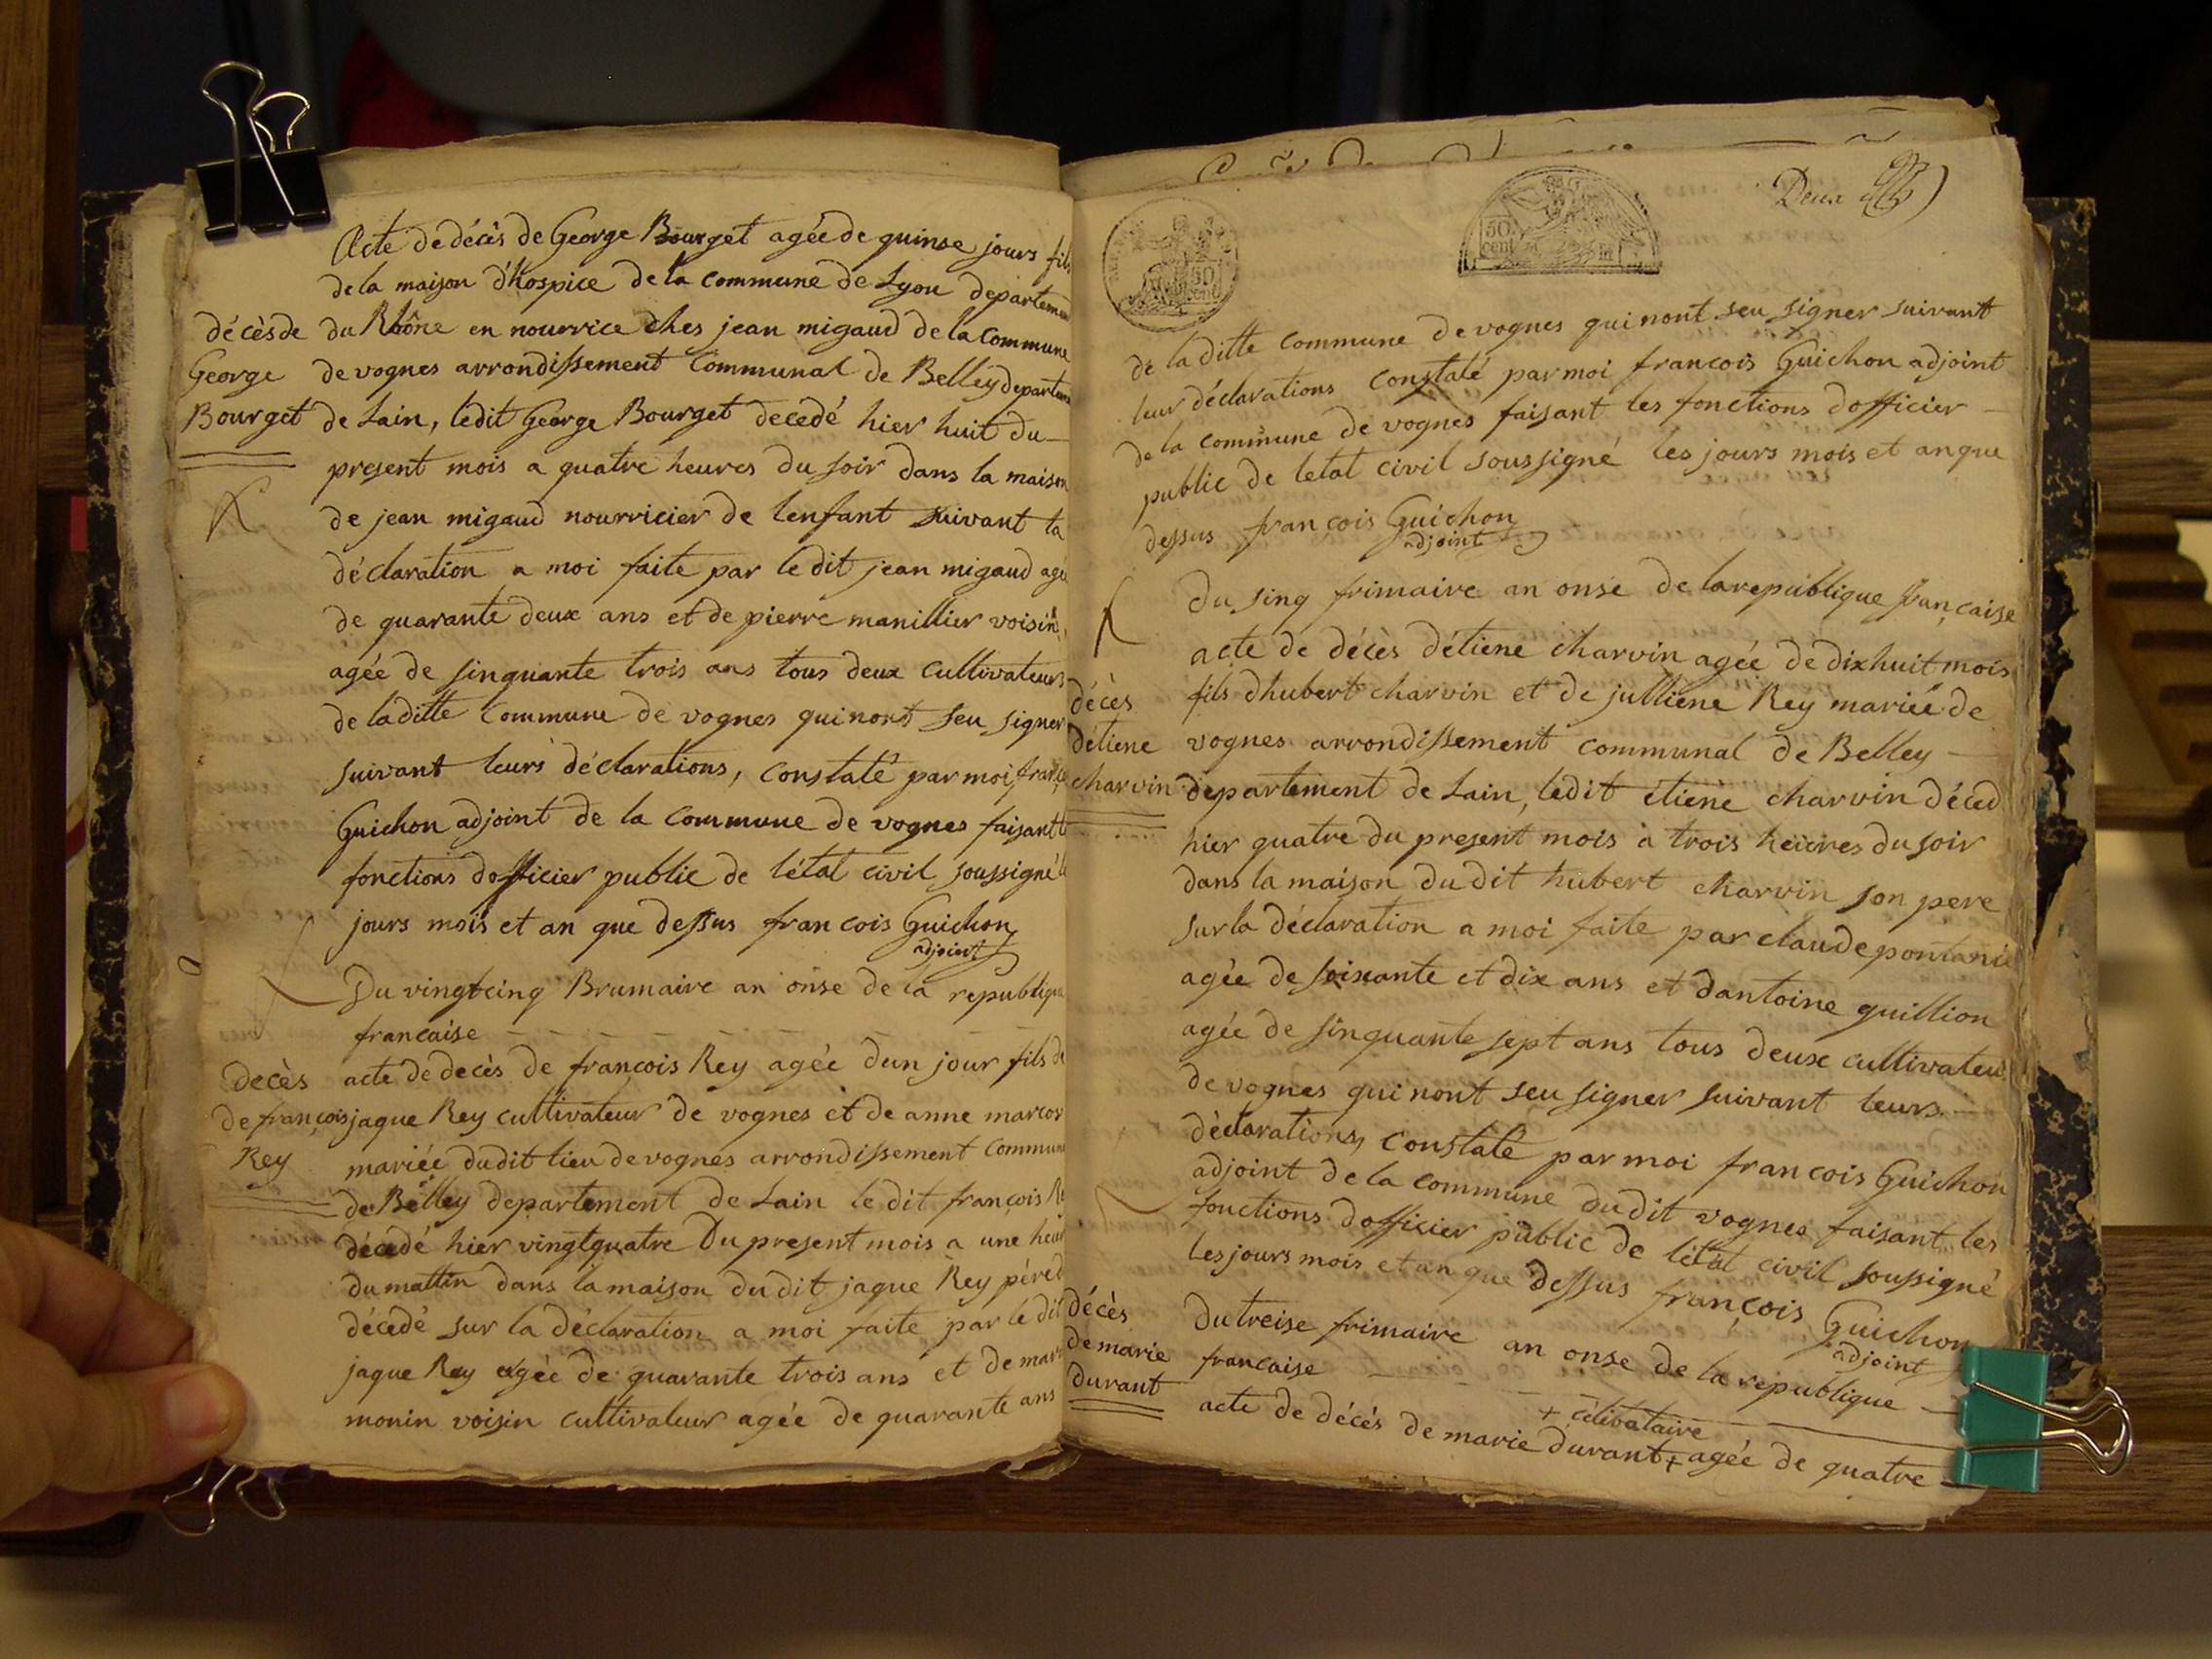 Acte de décès de George Bourget agée de quinse jours fils
de la maison d'hospice de la commune de Lyon departem
décès de
George
Bourget
du Rhône en nourrice ches jean migaud de la commune
de vognes arrondissement communal de Belley departem
de Lain, ledit George Bourget decedé hier huit du
present mois a quatre heures du soir dans la maison
de jean migaud nourricier de lenfant suivant la
déclaration a moi faite par le dit jean migaud agé
de quarante deux ans et de pierre manillier voisin
agée de sinquante trois ans tous deux cultivateurs
de la ditte commune de vognes qui nont seu signer
suivant leurs déclarations, constaté par moi franc
Guichon adjoint de la commune de vognes faisant l
fonctions dofficier public de létat civil soussigné l
jours mois et an que dessus francois Guichon
adjoint
Du vingtcinq Brumaire an onse de la republiqu
francaise
decès
de françois
Rey
acte de decès de françois Rey agée dun jour fils de
jaque Rey cultivateur de vognes et de anne marcor
mariée dudit lieu de vognes arrondissement commun
de Belley departement de Lain le dit françois R
décedé hier vingtquatre du present mois a une heur
du mattin dans la maison du dit jaque Rey père d
décedé sur la déclaration a moi faite par le dit
jaque Rey agée de quarante trois ans et de mar
monin voisin cultivateur agée de quarante ans
Deux
50
cent
50
cent
de la ditte commune de vognes qui nont seu signer suivant
leur déclarations constaté par moi francois Guichon adjoint
de la commune de vognes faisant les fonctions dofficier
public de letat civil soussigné les jours mois et an que
dessus francois Guichon
adjoint
du sinq frimaire an onse de la republique française
décès
détiene
charvin
acte de décès détiene charvin agée de dixhuit mois
fils dhubert charvin et de julliene Rey mariée de
vognes arrondissement communal de Belley
departement de Lain, ledit étiene charvin déced
hier quatre du present mois à trois heures du soir
dans la maison du dit hubert charvin son pere
sur la déclaration a moi faite par claude pontanie
agée de soixante et dix ans et dantoine guillion
agée de sinquante sept ans tous deux cultivateu
de vognes qui nont seu signer suivant leurs
déclarations, constaté par moi francois Guichon
adjoint de la commune du dit vognes faisant les
fonctions dofficier public de létat civil soussigné
les jours mois et an que dessus françois Guichon
adjoint
décès
de marie
durant
Du treise frimaire an onse de la republique
francaise
+ célibataire
acte de décès de marie durant + agée de quatre